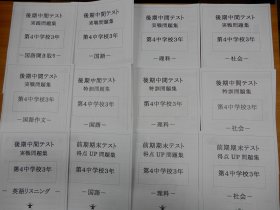 後期中間テスト
実戦問題集
第4中学校3年
－国語聞き取り－
後期中間テスト
実戦問題集
第4中学校3年
－国語－
後期中間テスト
実戦問題集
第4中学校3年
－理科－
後期中間テスト
実戦問題集
第4中学校3年
－社会－
後期中間テスト
実戦問題集
第4中学校3年
－国語作文－
後期中間テスト
特訓問題集
第4中学校3年
－国語－
後期中間テスト
特訓問題集
第4中学校3年
－理科－
後期中間テスト
特訓問題集
第4中学校3年
－社会－
後期中間テスト
実戦問題集
第4中学校3年
英語リスニング－
前期期末テスト
得点UP問題集
第4中学校3年
－国語－
前期期末テスト
得点UP問題集
第4中学校3年
－理科－
前期期末テスト
得点UP問題集
第4中学校3年
－社会－